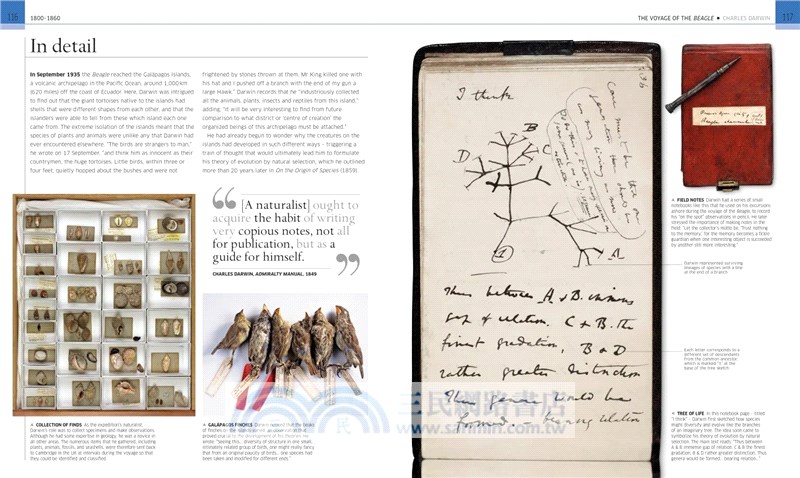 116
1800–1860
THE VOYAGE OF THE BEAGLE • CHARLES DARWIN
117
In detail
In September 1935 the Beagle reached the Galápagos Islands,
a volcanic archipelago in the Pacific Ocean, around 1,000km
(620 miles) off the coast of Ecuador. Here, Darwin was intrigued
to find out that the giant tortoises native to the islands had
shells that were different shapes from each other, and that the
islanders were able to tell from these which island each one
came from. The extreme isolation of the islands meant that the
species of plants and animals were unlike any that Darwin had
ever encountered elsewhere. "The birds are strangers to man,"
he wrote on 17 September, "and think him as innocent as their
countrymen, the huge tortoises. Little birds, within three or
four feet, quietly hopped about the bushes and were not
frightened by stones thrown at them. Mr King killed one with
his hat and I pushed off a branch with the end of my gun a
large Hawk." Darwin records that he "industriously collected
all the animals, plants, insects and reptiles from this island,"
adding, "It will be very interesting to find from future
comparison to what district or 'centre of creation' the
organized beings of this archipelago must be attached."
He had already begun to wonder why the creatures on the
islands had developed in such different ways – triggering a
train of thought that would ultimately lead him to formulate
his theory of evolution by natural selection, which he outlined
more than 20 years later in On the Origin of Species (1859).
“[A naturalist] ought to
acquire the habit of writing
very copious notes, not all
for publication, but as a
guide for himself.”
CHARLES DARWIN, ADMIRALTY MANUAL, 1849
COLLECTION OF FINDS As the expedition's naturalist,
Darwin's role was to collect specimens and make observations.
Although he had some expertise in geology, he was a novice in
all other areas. The numerous items that he gathered, including
plants, animals, fossils, and seashells, were therefore sent back
to Cambridge in the UK at intervals during the voyage so that
they could be identified and classified.
GALÁPAGOS FINCHES Darwin noticed that the beaks
of finches on the islands varied
proved crucial to the development of his theories. He
wrote: "Seeing this... diversity of structure in one small,
intimately related group of birds, one might really fancy
that from an original paucity of birds... one species had
been taken and modified for different ends."
36
I think
B
D
C
A
1
Case must be that one
generation then should be
as many living as now
Thus between A & B. immense
gap of relation. C & B. the
finest gradation, B & D
rather greater distinction
Thus genera would be
formed. – bearing relation
三民網路書店
www.sanmin.com.tw
FIELD NOTES Darwin had a series of small
notebooks like this that he used on his excursions
ashore during the voyage of the Beagle, to record
his "on the spot" observations in pencil. He later
stressed the importance of making notes in the
field: "Let the collector's motto be, 'Trust nothing
to the memory;' for the memory becomes a fickle
guardian when one interesting object is succeeded
by another still more interesting."
Darwin represented surviving
lineages of species with a line
at the end of a branch
Each letter corresponds to a
different set of descendants
from the common ancestor,
which is marked "1" at the
base of the tree sketch
TREE OF LIFE In this notebook page – titled
"I think" – Darwin first sketched how species
might diversify and evolve like the branches
of an imaginary tree. The idea soon came to
symbolize his theory of evolution by natural
selection. The main text reads, "Thus between
A & B immense gap of relation. C & B the finest
gradation. B & D rather greater distinction. Thus
genera would be formed, bearing relation..."